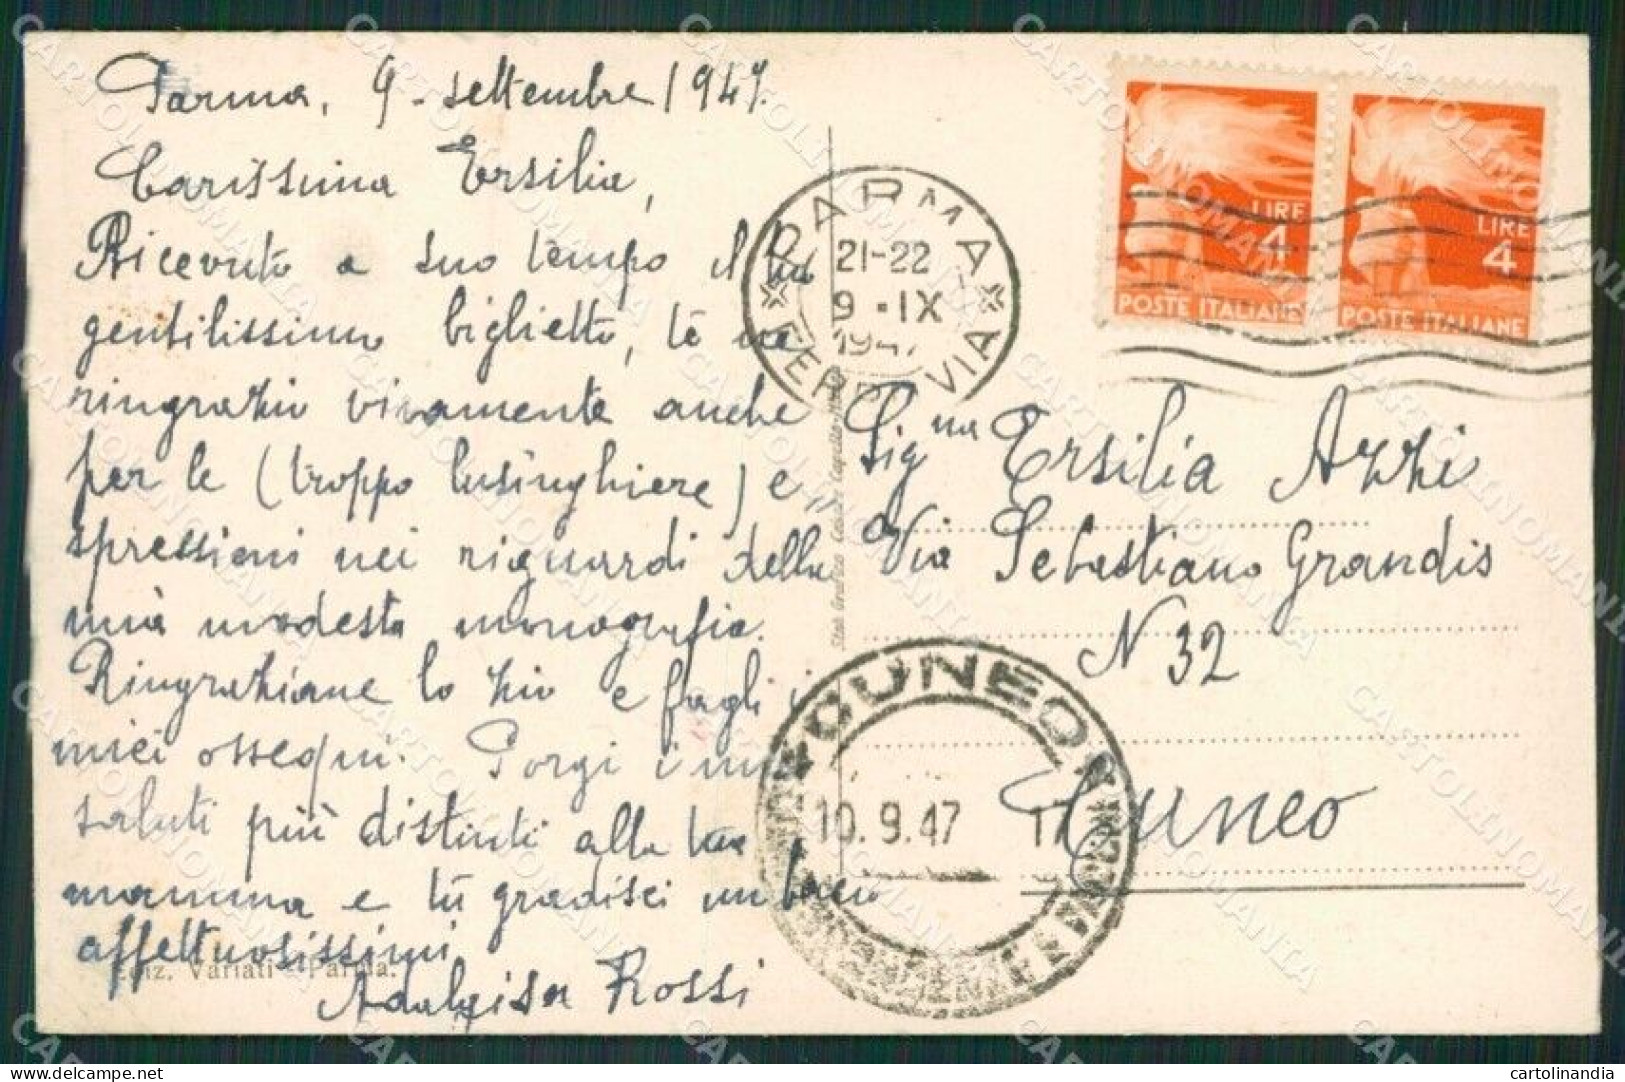 Parma, 9 - settembre 1947.
Carissima Ersilia,
Ricevuto a suo tempo il tuo
gentilissimo biglietto, te ne
ringrazio vivamente anche
per le (troppo lusinghiere) e„
spressioni nei riguardi della
mia modesta monografia.
Ringraziane lo zio e fagli i
miei ossequi. Porgi i miei
saluti più distinti alla tua
mamma e tu gradisci un bacio
affettuosissimi
Adalgisa Rossi
Ediz. Variati - Parma.
PARMA
21-22
9 · IX
1947
FERROVIA
LIRE
4
POSTE ITALIANE
LIRE
4
POSTE ITALIANE
Sig na Ersilia Azzi
Via Sebastiano Grandis
N 32
Cuneo
CUNEO
10.9.47 17
CARTOLINOMANIA
cartolinandia